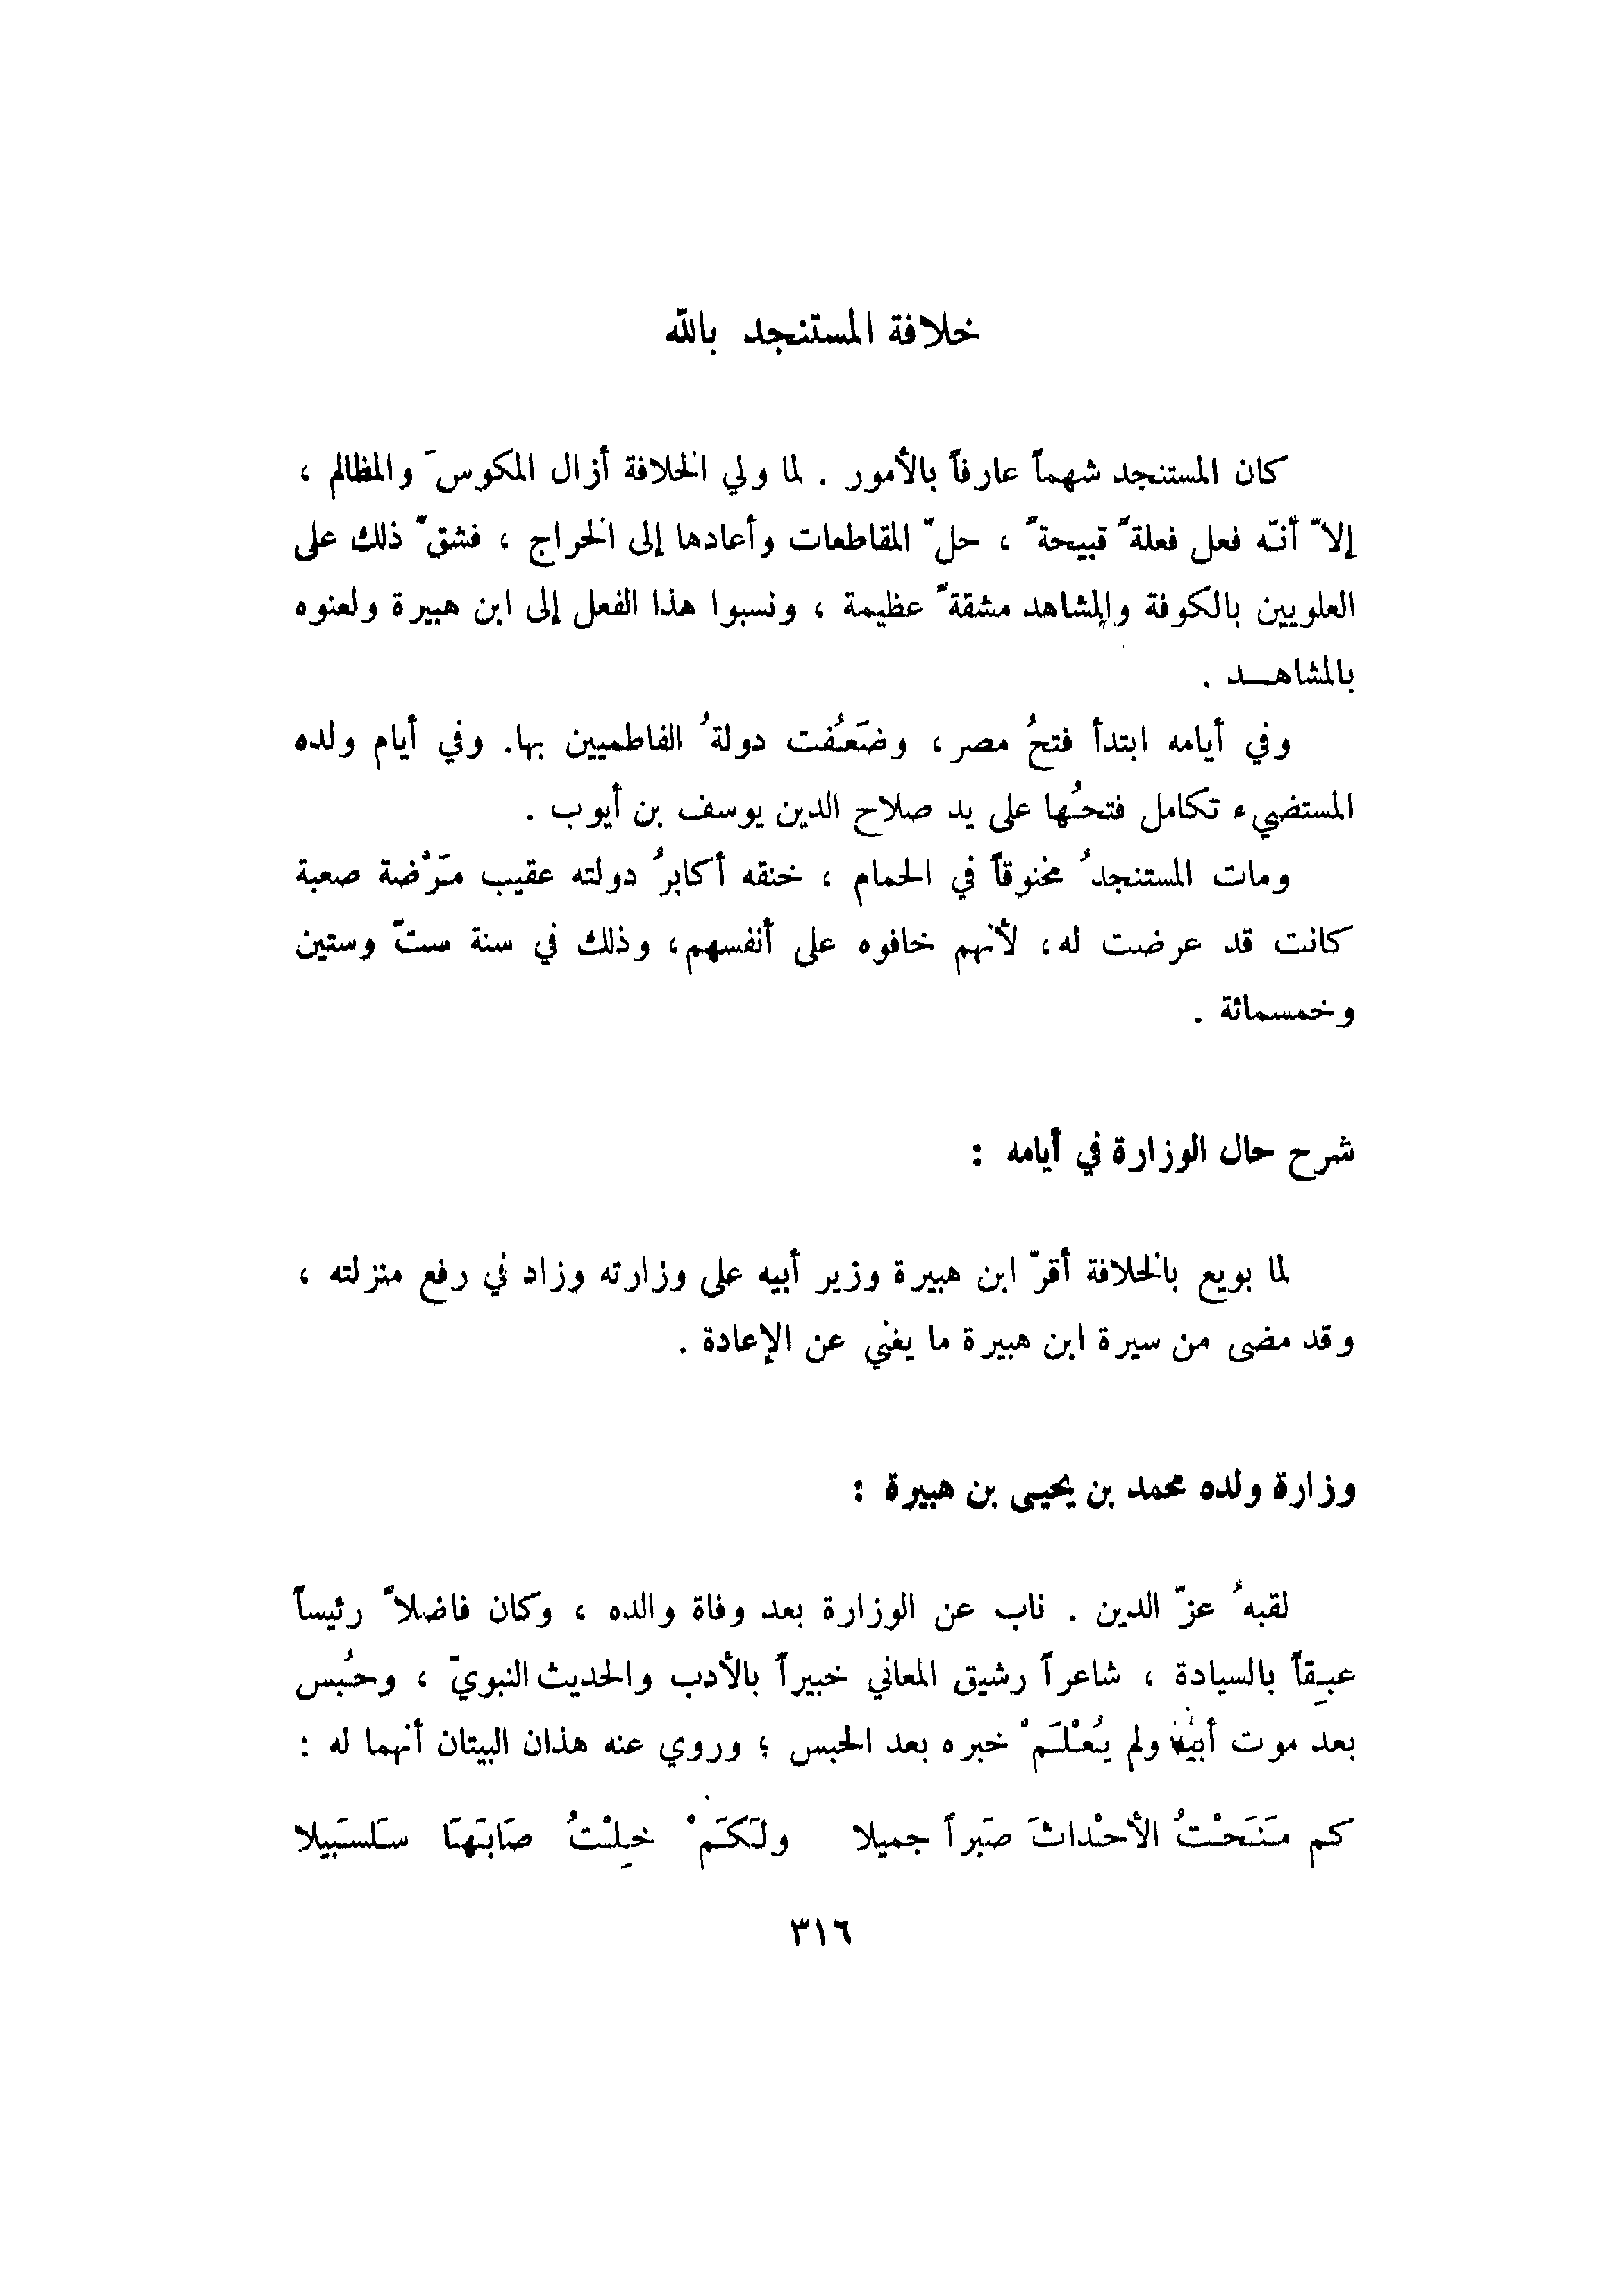 خلافة المستنجد بالله
كان المستنجد شهماً عارفاً بالأمور . لما ولي الخلافة أزال المكوسَ والمظالم ،
إلاّ أنّه فعل فعلةً قبيحةً ، حلّ المقاطعات وأعادها إلى الخراج ، فشقّ ذلك على
العلويين بالكوفة والمشاهد مشقةً عظيمة ، ونسبوا هذا الفعل إلى ابن هبيرة ولعنوه
بالمشاهـد .
وفي أيامه ابتدأ فتحُ مصر ، وضَعُفت دولةُ الفاطميين بها. وفي أيام ولده
المستضيء تكامل فتحُها على يد صلاح الدين يوسف بن أيوب .
ومات المستنجدُ مخنوقاً في الحمام ، خنقه أكابرُ دولته عقيب مَرْضة صعبة
كانت قد عرضت له، لأنهم خافوه على أنفسهم، وذلك في سنة ستّ وستين
وخمسمائة .
شرح حال الوزارة في أيامه :
لما بويع بالخلافة أقرّ ابن هبيرة وزير أبيه على وزارته وزاد في رفع منزلته ،
وقد مضى من سيرة ابن هبيرة ما يغني عن الإعادة .
وزارة ولده محمد بن يحيى بن هبيرة :
لقبهُ عزّ الدين . ناب عن الوزارة بعد وفاة والده ، وكان فاضلاً رئيساً
عبِقاً بالسيادة ، شاعراً رشيق المعاني خبيراً بالأدب والحديث النبويّ ، وحُبس
بعد موت أبيه ولم يُعْلَمْ خبره بعد الحبس ؛ وروي عنه هذان البيتان أنهما له :
كم مَنَحْتُ الأحْداثَ صَبراً جميلا ولَكَمْ خِلْتُ صَابَهَا سَلسَبيلا
٣١٦